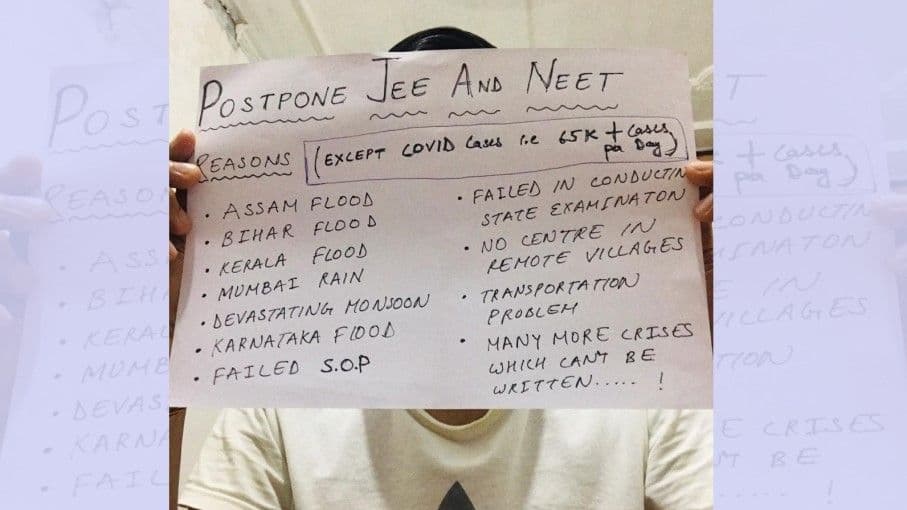 POSTPONE JEE AND NEET
REASONS (EXCEPT COVID Cases i.e 65K + Cases
per Day)
• ASSAM FLOOD
• BIHAR FLOOD
• KERALA FLOOD
• MUMBAI RAIN
• DEVASTATING MONSOON
• KARNATAKA FLOOD
• FAILED S.O.P
• FAILED IN CONDUCTIN
STATE EXAMINATON
• NO CENTRE IN
REMOTE VILLAGES
• TRANSPORTATION
PROBLEM
• MANY MORE CRISES
WHICH CAN'T BE
WRITTEN..... !